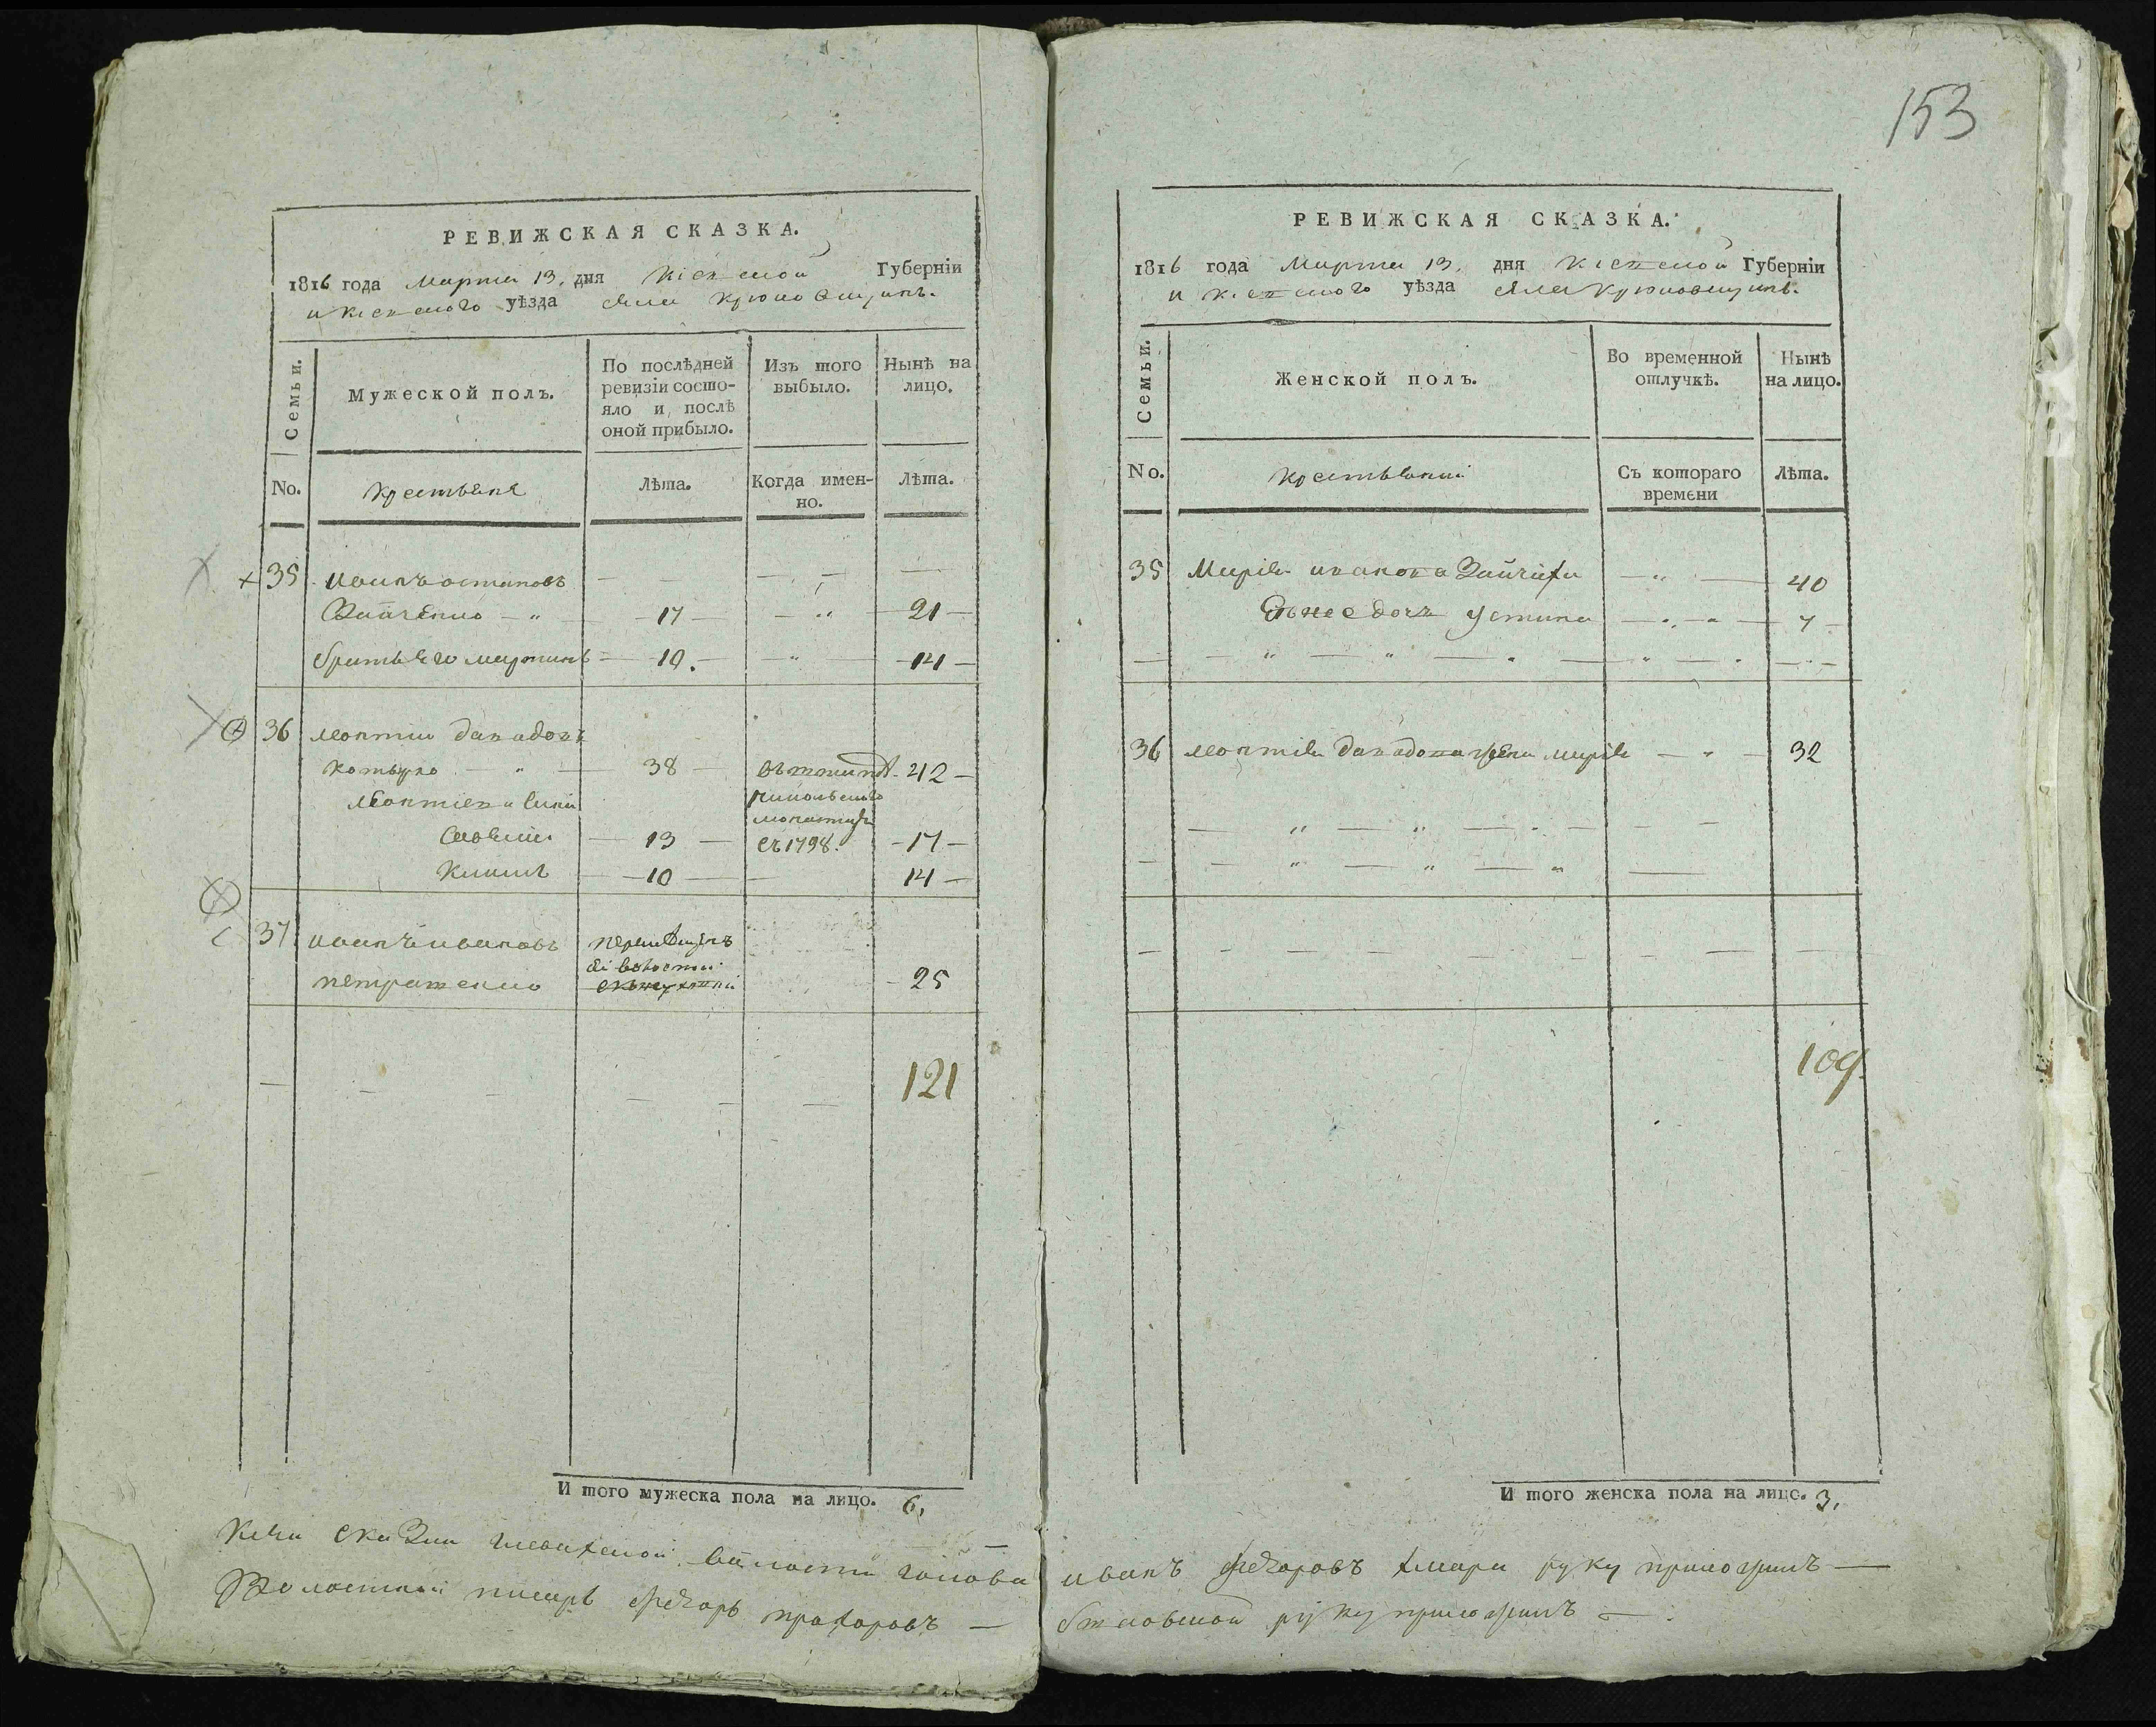 РЕВИЖСКАЯ СКАЗКА.
1816 года Марта 13. дня Кіевской Губерніи
и Кіевского уѣзда села Крюковщинъ.
Семьи. Мужеской полъ. По послѣдней ревизіи состояло и послѣ оной прибыло. Изъ того выбыло. Нынѣ на лицо.
No. крестьяне Лѣта. Когда именно. Лѣта.
35 иванъ остаповъ — — —
Зайченко — „ — 17 — — „ — 21 —
братъ его мартинъ — 10. — „ — 14 —
36 леонтии
котурко — „ — 38 — 42 —
леонтиева сини
Савелии — 13 — съ 1798. — 17 —
Климъ — 10 — — 14 —
37 иванъ ивановъ
петрашенко — 25
121
И того мужеска пола на лицо. 6.
153
РЕВИЖСКАЯ СКАЗКА.
1816 года Марта 13. дня Кіевской Губерніи
и Кіевского уѣзда села Крюковщинъ.
Семьи. Женской полъ. Во временной отлучкѣ. Нынѣ на лицо.
No. крестьянки Съ котораго времени Лѣта.
35 Марія иванова Зайчиха — „ — 40
Ея дочь Устина — „ — 7 —
36 леонтия жена марія — „ — 32
109
И того женска пола на лицо. 3.
Ксей Сказки волости голова иванъ федоровъ хмара руку приложилъ —
Волостной писарь федоръ прохоровъ — руку приложилъ —